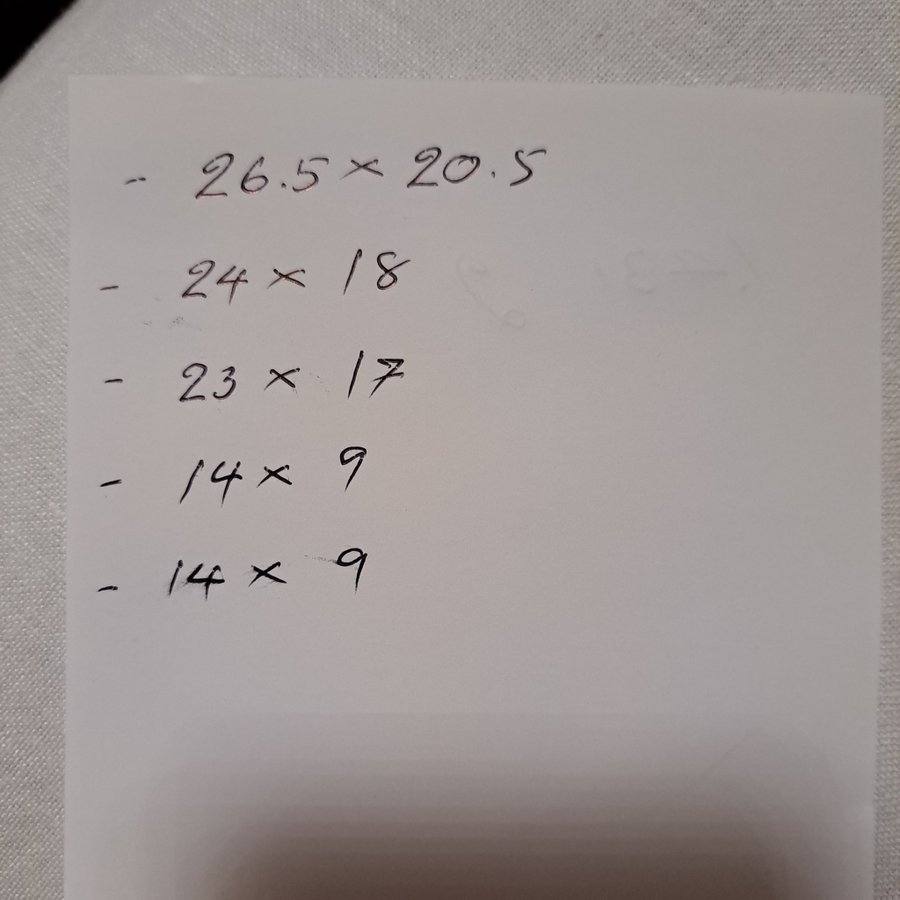 - 26.5 × 20.5
- 24 × 18
- 23 × 17
- 14 × 9
- 14 × 9